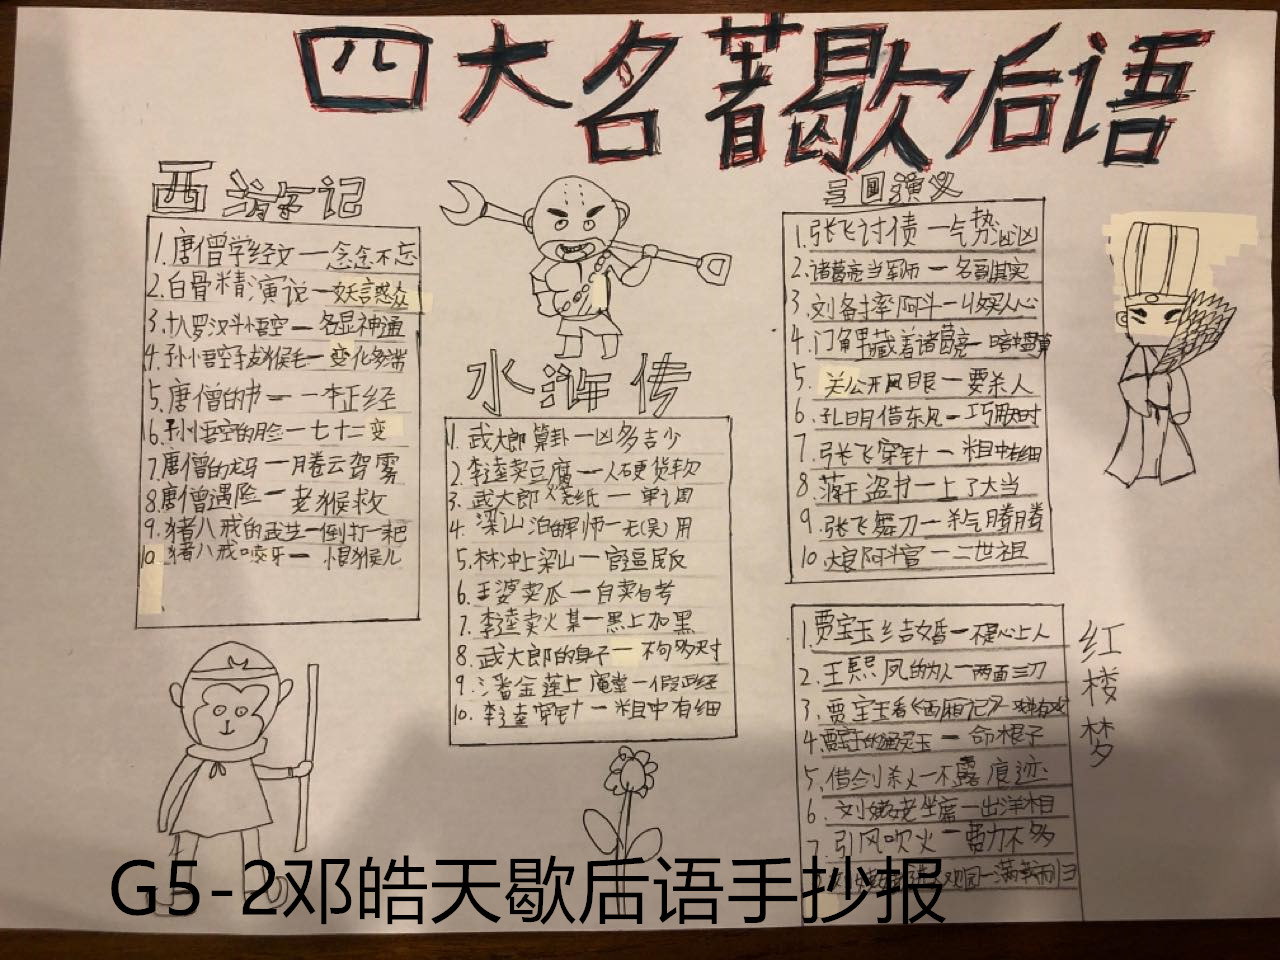 四大名著歇后语
西游记
1.唐僧学经文—念念不忘
2.白骨精演说—妖言惑众
3.十八罗汉斗悟空—各显神通
4.孙小悟空拔猴毛—变化多端
5.唐僧的书—一本正经
6.孙小悟空的脸—七十二变
7.唐僧的龙马—腾云驾雾
8.唐僧遇险—老猴救
9.猪八戒的武艺—倒打一耙
10.猪八戒咬牙—恨猴儿
水浒传
1.武大郎算卦—凶多吉少
2.李逵卖豆腐—人硬货软
3.武大郎烧纸—单调
4.梁山泊的军师—无(吴)用
5.林冲上梁山—官逼民反
6.王婆卖瓜—自卖自夸
7.李逵卖火某—黑上加黑
8.武大郎的身子—不够尺寸
9.潘金莲上庵堂—假正经
10.李逵穿针—粗中有细
三国演义
1.张飞讨债—气势汹汹
2.诸葛亮当军师—名副其实
3.刘备摔阿斗—收买人心
4.门角里藏着诸葛亮—暗中盘算
5.关公开凤眼—要杀人
6.孔明借东风—巧用天时
7.张飞穿针—粗中有细
8.蒋干盗书—上了大当
9.张飞舞刀—杀气腾腾
10.阿斗官—二世祖
红楼梦
1.贾宝玉结婚—不是心上人
2.王熙凤的为人—两面三刀
3.贾宝玉看《西厢记》—戏中有戏
4.贾宝玉的通灵玉—命根子
5.借剑杀人—不露痕迹
6.刘姥姥坐席—出洋相
7.引风吹火—费力不多
刘姥姥进大观园—满载而归
G5-2邓皓天歇后语手抄报